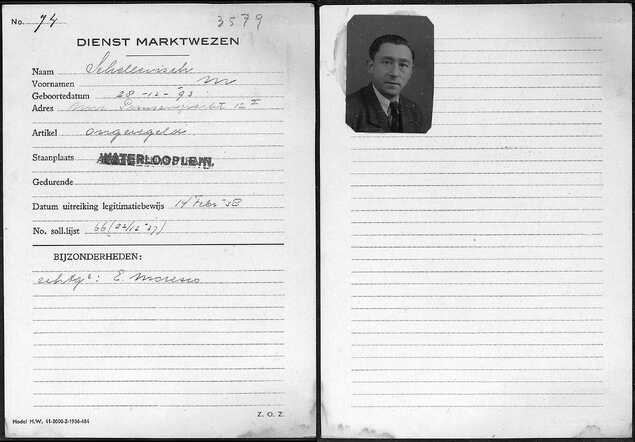 No. 74
3579
DIENST MARKTWEZEN
Naam Schellevisch
Voornamen M
Geboortedatum 28-12-'93
Adres 12 I
Artikel ongeregeld
Staanplaats WATERLOOPLEIN.
Gedurende
Datum uitreiking legitimatiebewijs 14 Febr '38
No. soll.lijst 66 (22/12 '37)
BIJZONDERHEDEN:
echtgt: E. Moresco
Z. O. Z.
Model M.W. 41-2000-2-1936-484